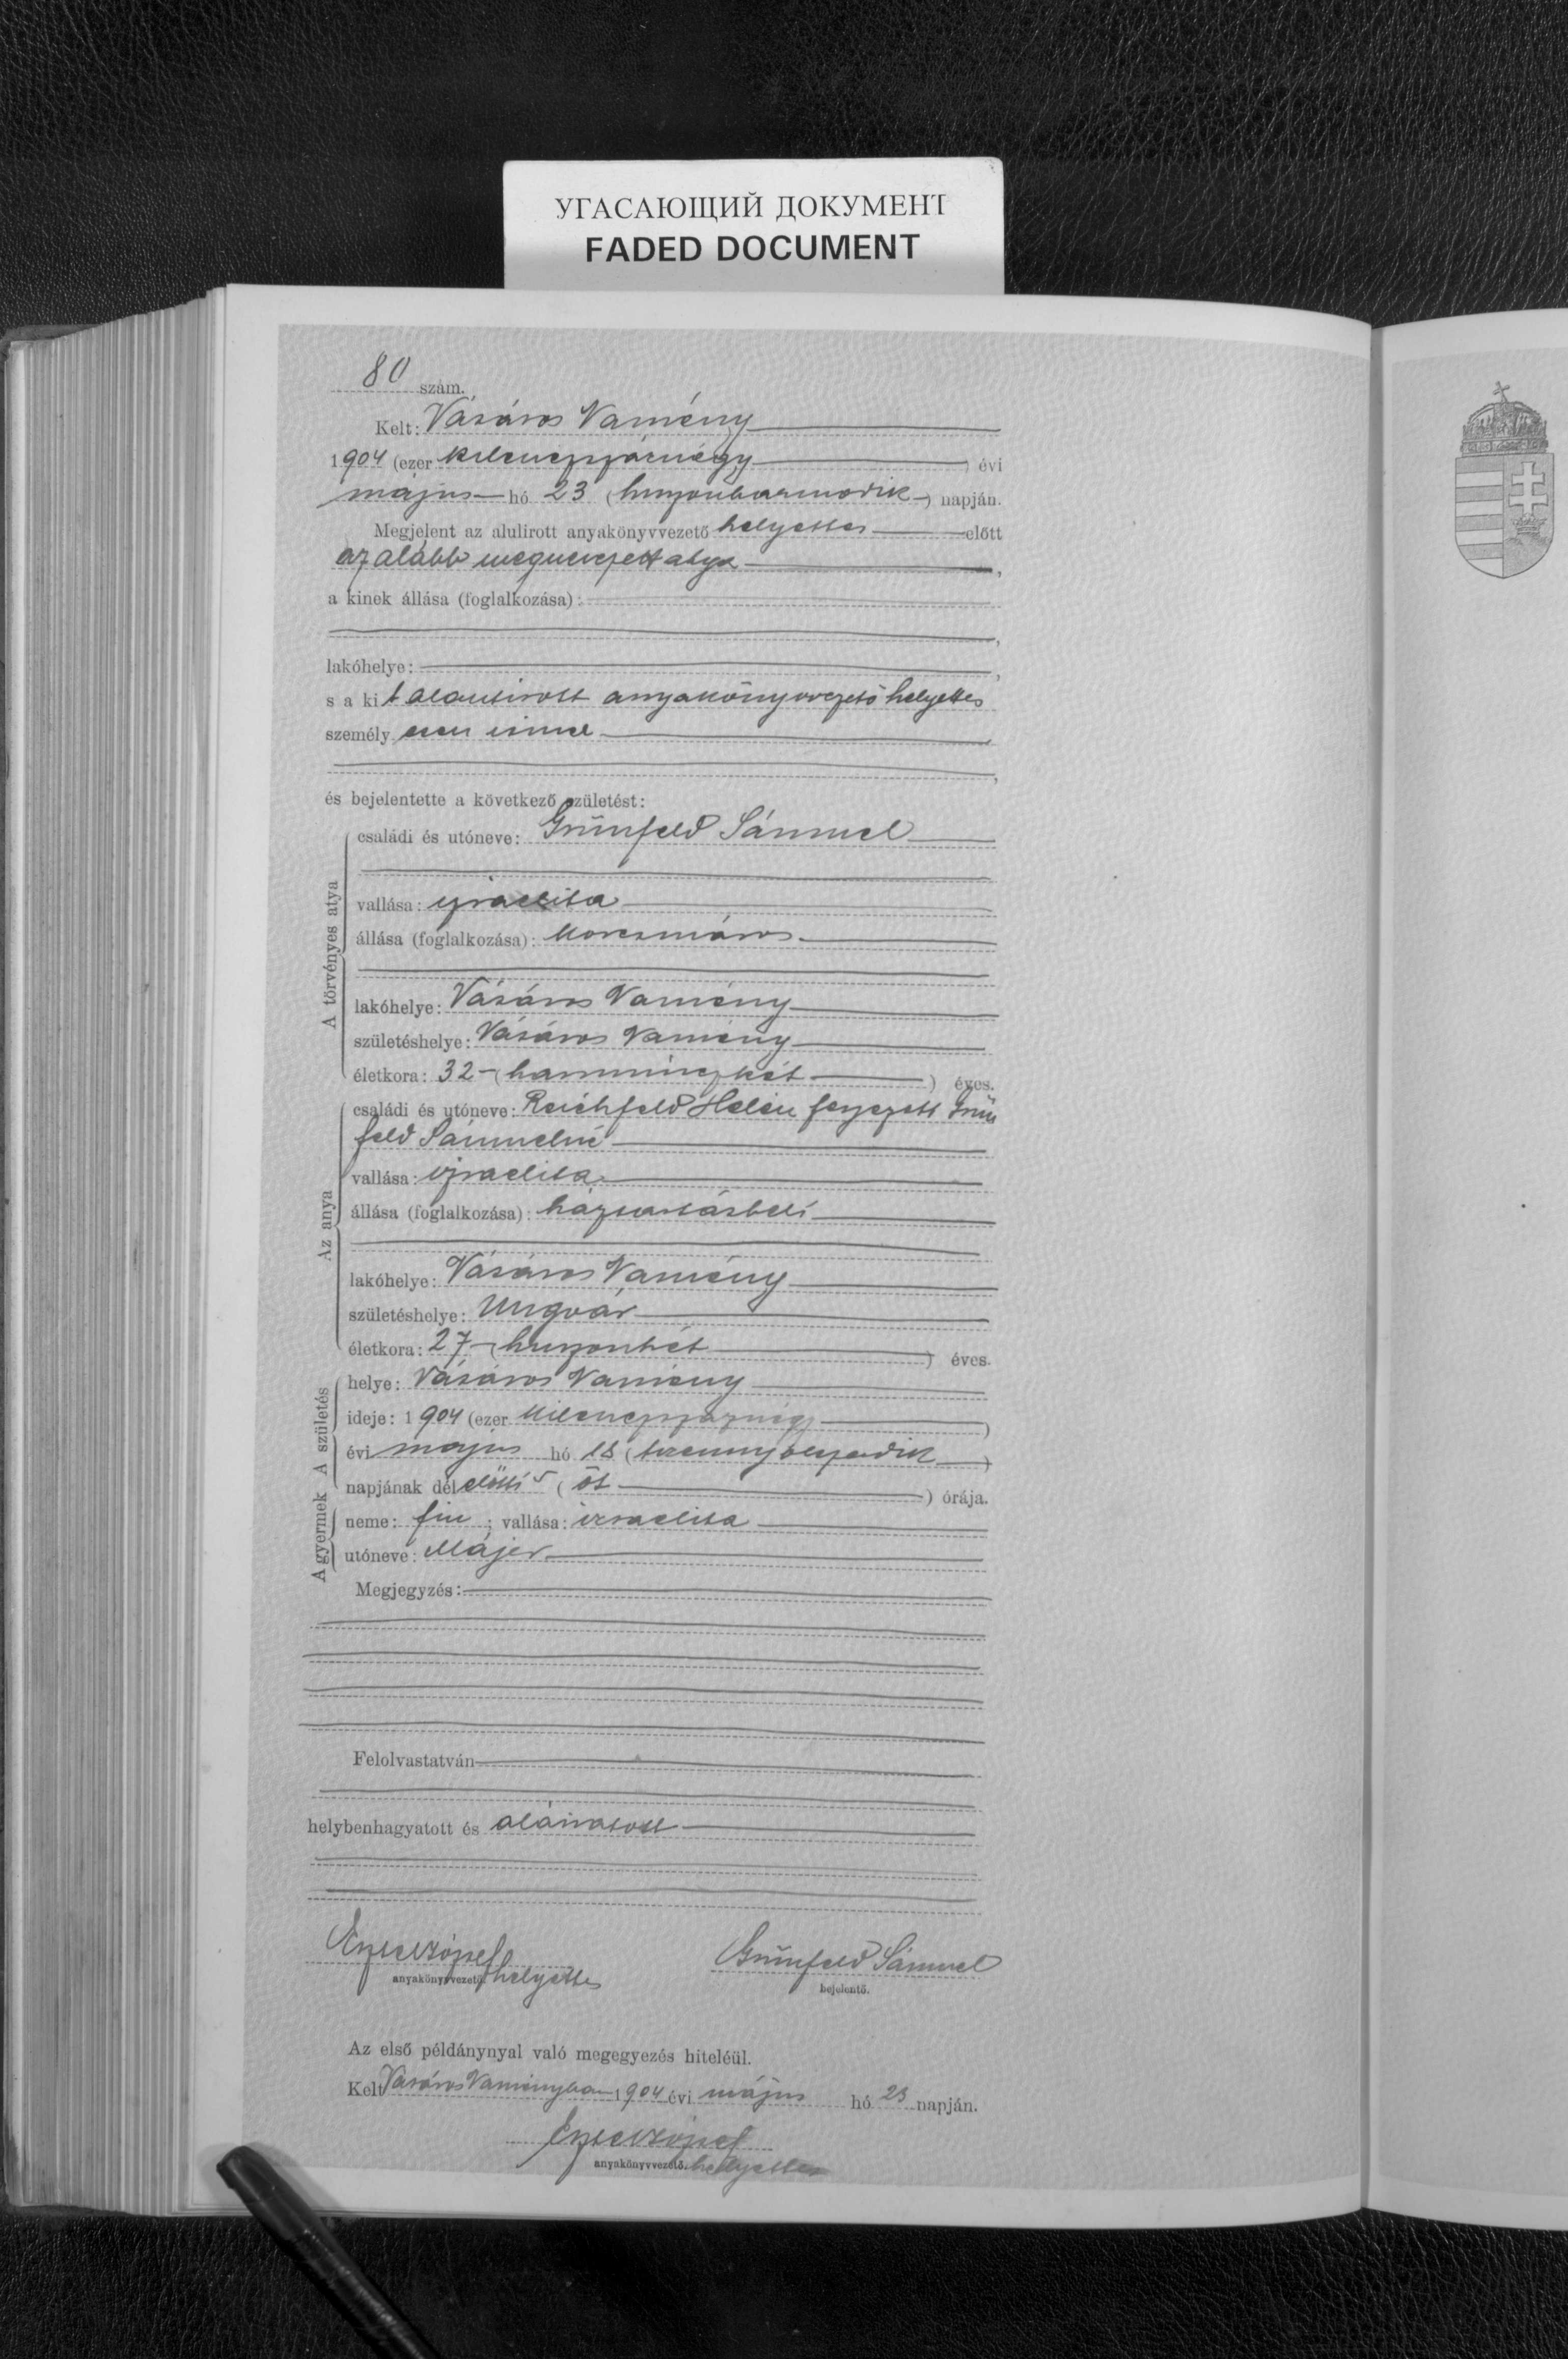 УГАСАЮЩИЙ ДОКУМЕНТ
FADED DOCUMENT
80 szám.
Kelt: Vásáros Namény
1904 (ezer kilenczszáznégy) évi
május hó 23 (huszonharmadik) napján.
Megjelent az alulirott anyakönyvvezető helyettes előtt
az alább megnevezett atya,
a kinek állása (foglalkozása):
lakóhelye:
s a kit alantirott anyakönyvvezető helyettes
személyesen ismer
és bejelentette a következő születést:
A törvényes atya
családi és utóneve: Grünfeld Sámuel
vallása: izraelita
állása (foglalkozása): korcsmáros
lakóhelye: Vásáros Namény
születéshelye: Vásáros Namény
életkora: 32 (harminczkét) éves.
Az anya
családi és utóneve: Reichfeld Helén férjezett Grün
feld Sámuelné
vallása: izraelita
állása (foglalkozása): háztartásbeli
lakóhelye: Vásáros Namény
születéshelye: Ungvár
életkora: 27 (huszonhét) éves.
A gyermek A születés
helye: Vásáros Namény
ideje: 1904 (ezer kilenczszáznégy)
évi május hó 18 (tizennyolczadik)
napjának délelőtti 5 (öt) órája.
neme: fiu; vallása: izraelita
utóneve: Májer
Megjegyzés:
Felolvastatván
helybenhagyatott és aláiratott
anyakönyvvezető helyettes
Grünfeld Sámuel
bejelentő.
Az első példánynyal való megegyezés hiteléül.
Kelt Vásáros Naményban 1904 évi május hó 23 napján.
anyakönyvvezető. helyettes